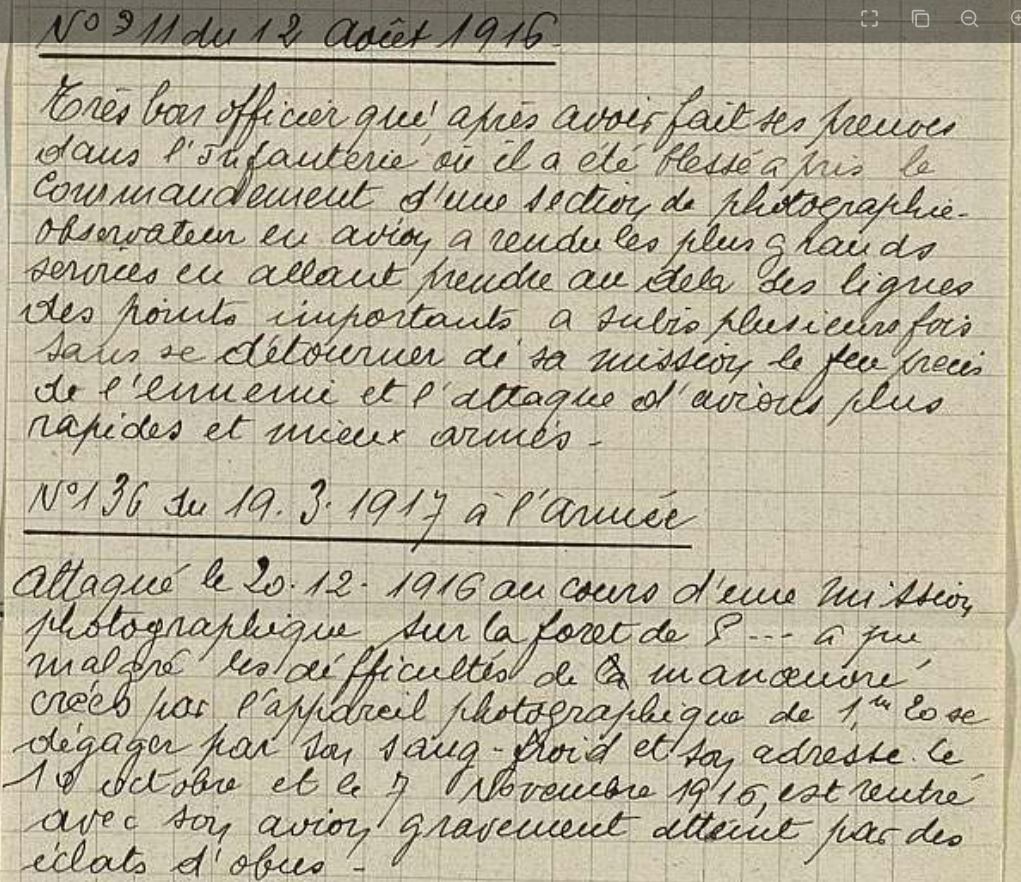 N° 311 du 12 Août 1916
Très bon officier qui après avoir fait ses preuves
dans l'Infanterie où il a été blessé a pris le
Commandement d'une section de photographie-
Observateur en avion a rendu les plus grands
services en allant prendre au dela des lignes
des points importants a subis plusieurs fois
sans se détourner de sa mission le feu precis
de l'ennemi et l'attaque d'avions plus
rapides et mieux armés -
N° 136 du 19.3.1917 à l'Armée
Attaqué le 20.12.1916 au cours d'une mission
photographique sur la foret de ? --- a pu
malgré les difficultés de la manœuvre
créés par l'appareil photographique de 1,m 20 se
dégager par son sang-froid et son adresse. Le
octobre et le 7 Novembre 1916, est rentré
avec son avion gravement atteint par des
éclats d'obus -